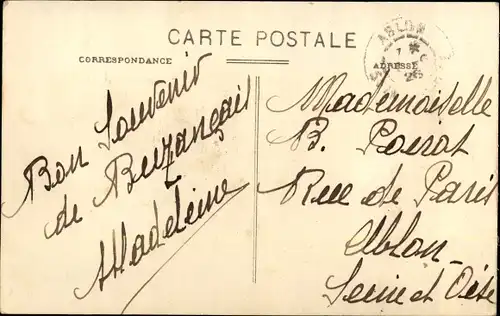 CARTE POSTALE
CORRESPONDANCE
ADRESSE
ABLON
Bon Souvenir
de Buzançais
Madeleine
Mademoiselle
B. Poirot
Rue de Paris
Ablon
Seine et Oise